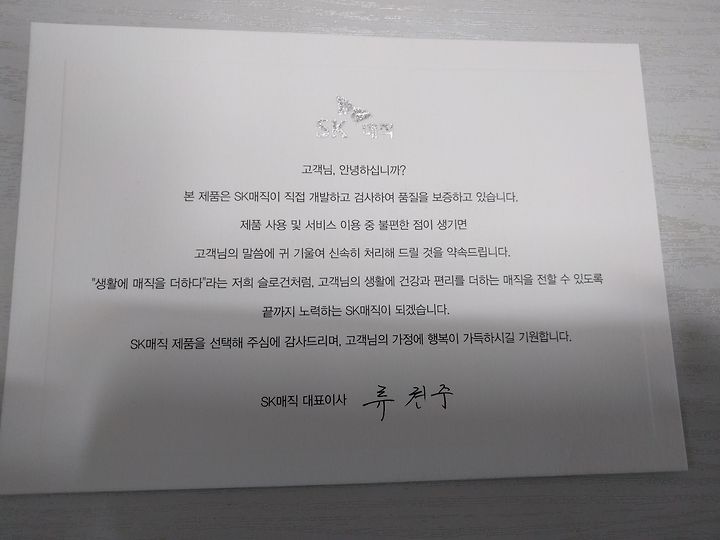 SK매직
고객님, 안녕하십니까?
본 제품은 SK매직이 직접 개발하고 검사하여 품질을 보증하고 있습니다.
제품 사용 및 서비스 이용 중 불편한 점이 생기면
고객님의 말씀에 귀 기울여 신속히 처리해 드릴 것을 약속드립니다.
"생활에 매직을 더하다"라는 저희 슬로건처럼, 고객님의 생활에 건강과 편리를 더하는 매직을 전할 수 있도록
끝까지 노력하는 SK매직이 되겠습니다.
SK매직 제품을 선택해 주심에 감사드리며, 고객님의 가정에 행복이 가득하시길 기원합니다.
SK매직 대표이사 류권주